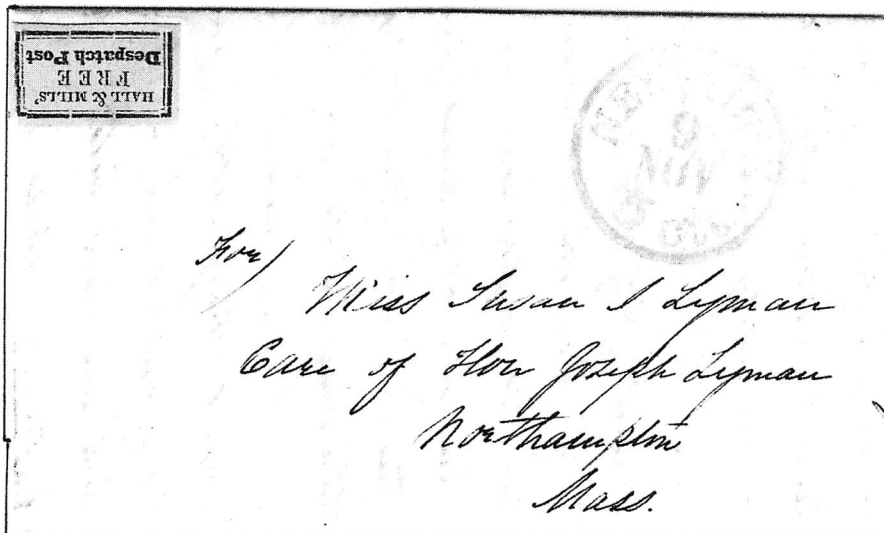 HALL & MILLS'
FREE
Despatch Post
NEW
9
NOV
5
For)
Miss Susan I Lyman
Care of Hon Joseph Lyman
Northampton
Mass.